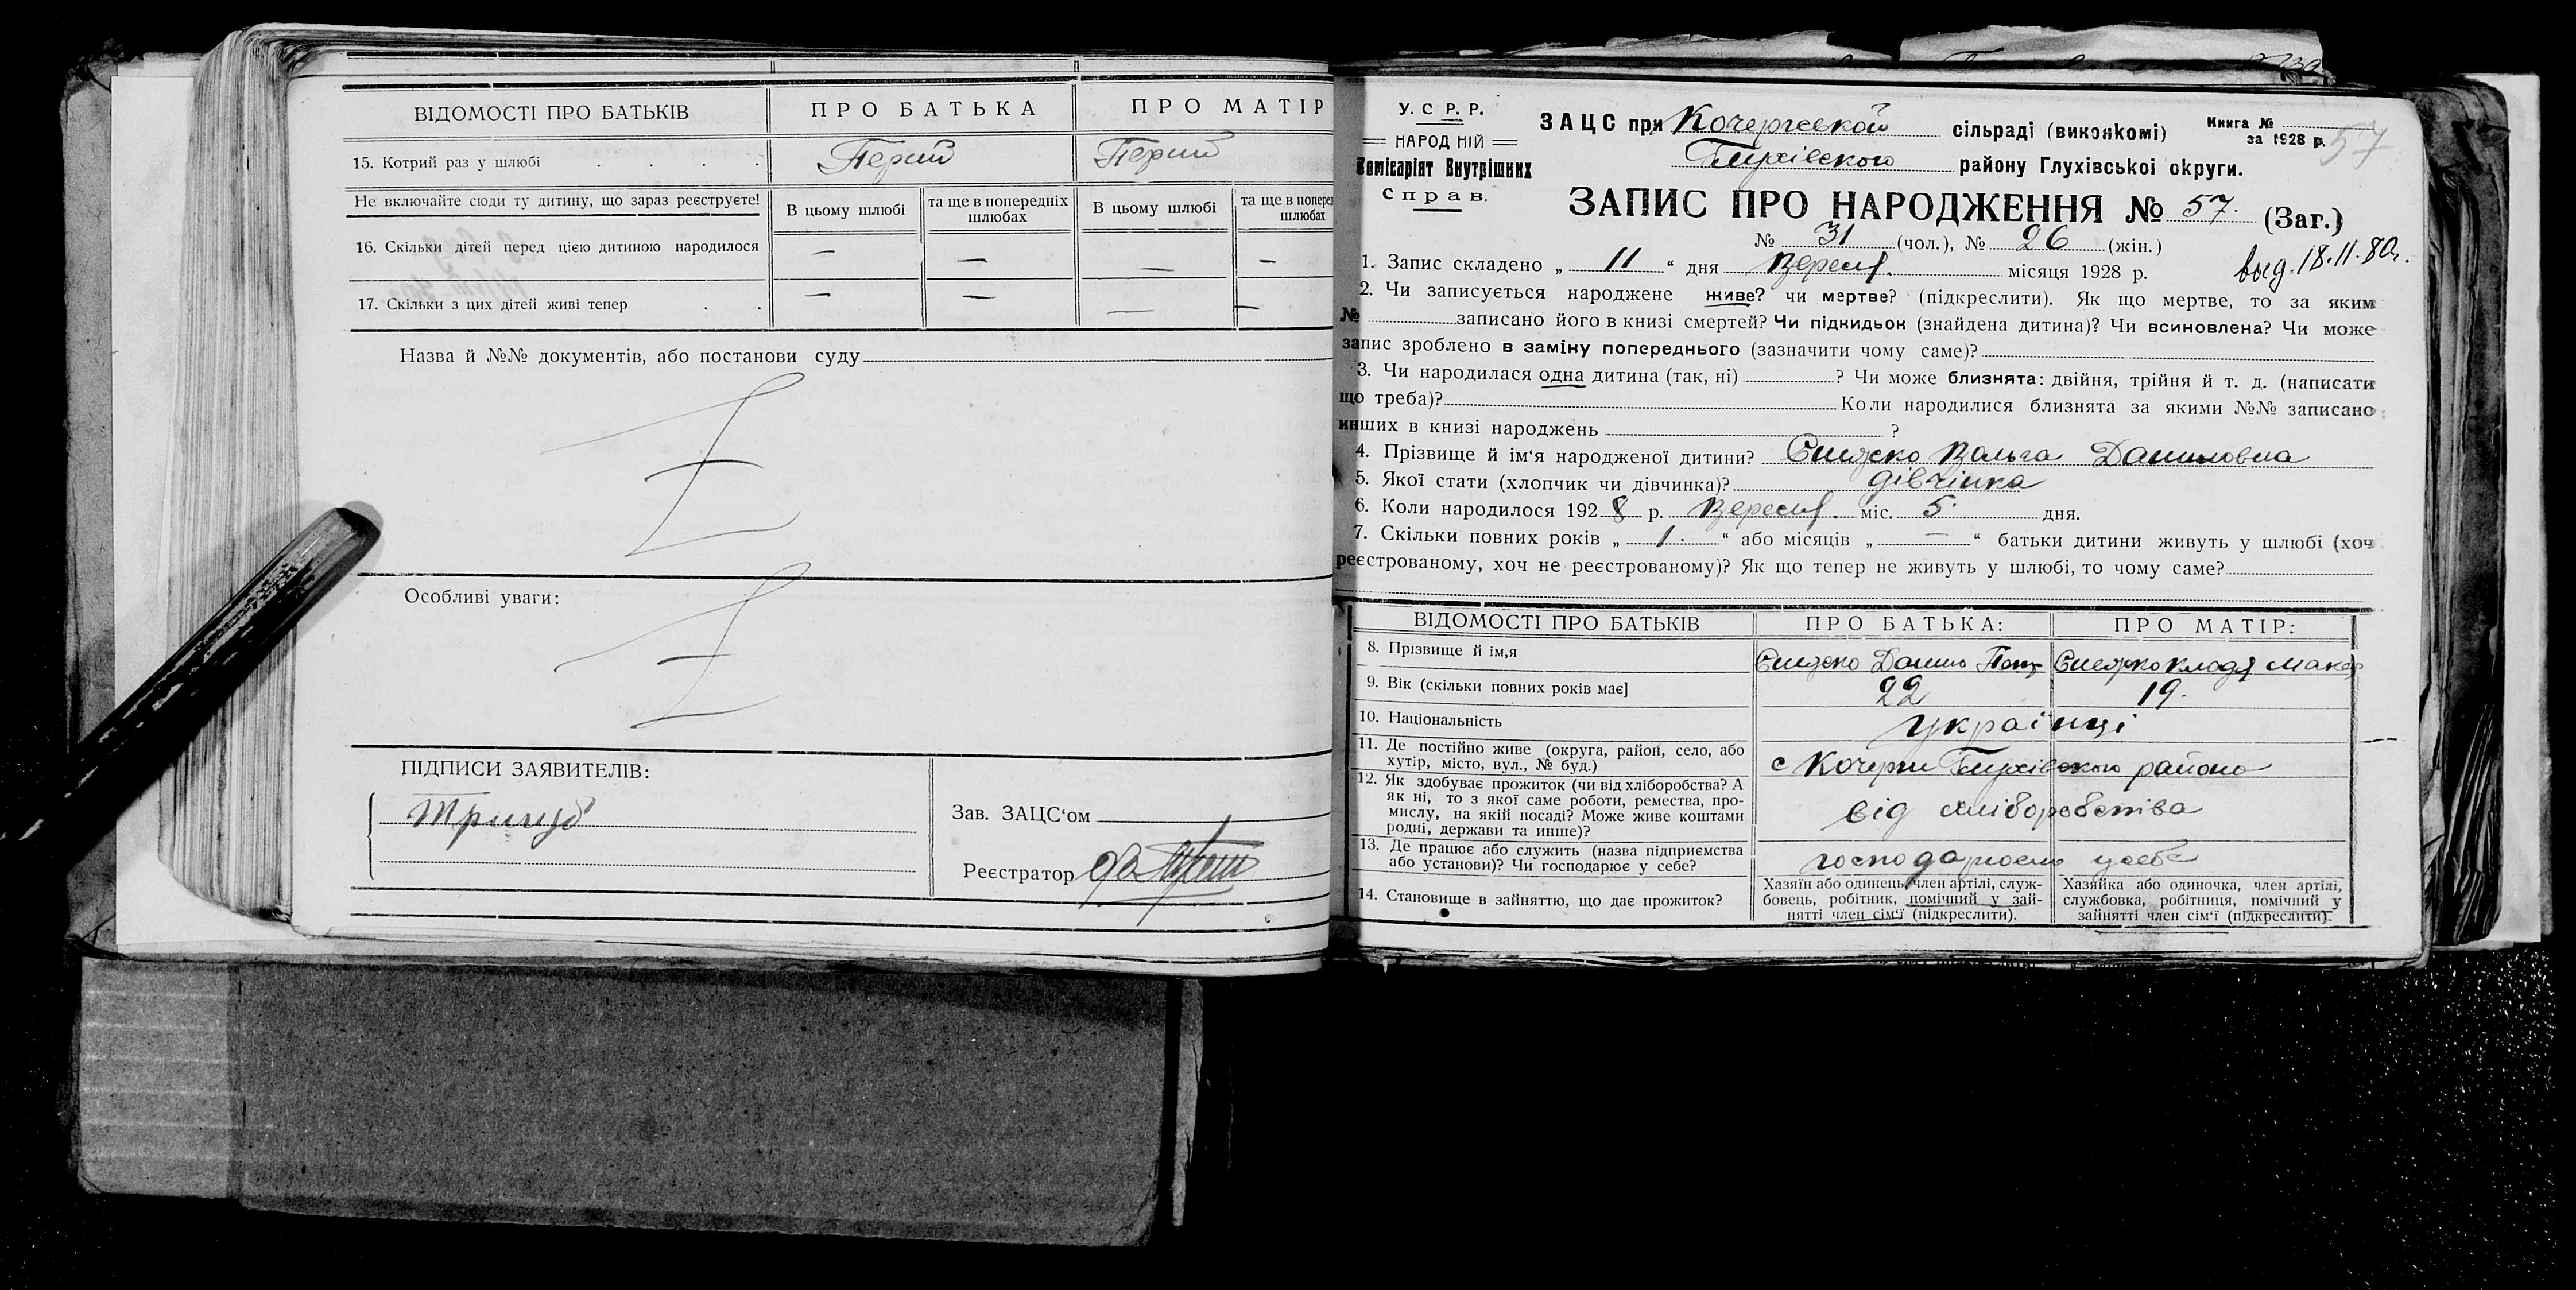 ВІДОМОСТІ ПРО БАТЬКІВ
ПРО БАТЬКА
ПРО МАТІР
15. Котрий раз у шлюбі
Перший
Перший
Не включайте сюди ту дитину, що зараз реєструєте!
В цьому шлюбі
та ще в попередніх шлюбах
В цьому шлюбі
та ще в попере
шлюбах
16. Скільки дітей перед цією дитиною народилося — — — —
17. Скільки з цих дітей живі тепер — — — —
Назва й №№ документів, або постанови суду
Особливі уваги:
ПІДПИСИ ЗАЯВИТЕЛІВ:
Зав. ЗАЦС‘ом
Реєстратор
У. С. Р. Р.
НАРОДНІЙ
Комісаріят Внутрішних
Справ.
ЗАЦС при сільраді (виконкомі)
Глухівського району Глухівської округи.
Книга №
за 1928 р.
57
ЗАПИС ПРО НАРОДЖЕННЯ № 57. (Заг.)
№ 31 (чол.), № 26 (жін.)
выд. 18.11.80г.
1. Запис складено „ 11 “ дня Вересня. місяця 1928 р.
2. Чи записується народжене живе? чи мертве? (підкреслити). Як що мертве, то за яким
№ записано його в книзі смертей? Чи підкидьок (знайдена дитина)? Чи всиновлена? Чи може
запис зроблено в заміну попереднього (зазначити чому саме)?
3. Чи народилася одна дитина (так, ні) ? Чи може близнята: двійня, трійня й т. д. (написати
що треба)? Коли народилися близнята за якими №№ записано
инших в книзі народжень ?
4. Прізвище й ім‘я народженої дитини? Вольга Даниловна
5. Якої стати (хлопчик чи дівчинка)? дівчінка
6. Коли народилося 1928 р. Вересня. міс. 5. дня.
7. Скільки повних років „ 1. “ або місяців „ — “ батьки дитини живуть у шлюбі (хоч
реєстрованому, хоч не реєстрованому)? Як що тепер не живуть у шлюбі, то чому саме?
ВІДОМОСТІ ПРО БАТЬКІВ
ПРО БАТЬКА:
ПРО МАТІР:
8. Прізвище й ім,я
Данило
9. Вік (скільки повних років має]
22
19.
10. Національність
українці
11. Де постійно живе (округа, район, село, або
хутір, місто, вул., № буд.)
с Кочерги Глухівського району
12. Як здобуває прожиток (чи від хліборобства? А
як ні, то з якої саме роботи, ремества, про-
мислу, на якій посаді? Може живе коштами
родні, держави та инше)?
від хліборобства
13. Де працює або служить (назва підприємства
або установи)? Чи господарює у себе?
14. Становище в зайняттю, що дає прожиток?
Хазяїн або одинець, член артілі, служ-
бовець, робітник, помічний у зай-
нятті член сім‘ї (підкреслити).
Хазяйка або одиночка, член артілі,
службовка, робітниця, помічний у
зайнятті член сім‘ї (підкреслити).